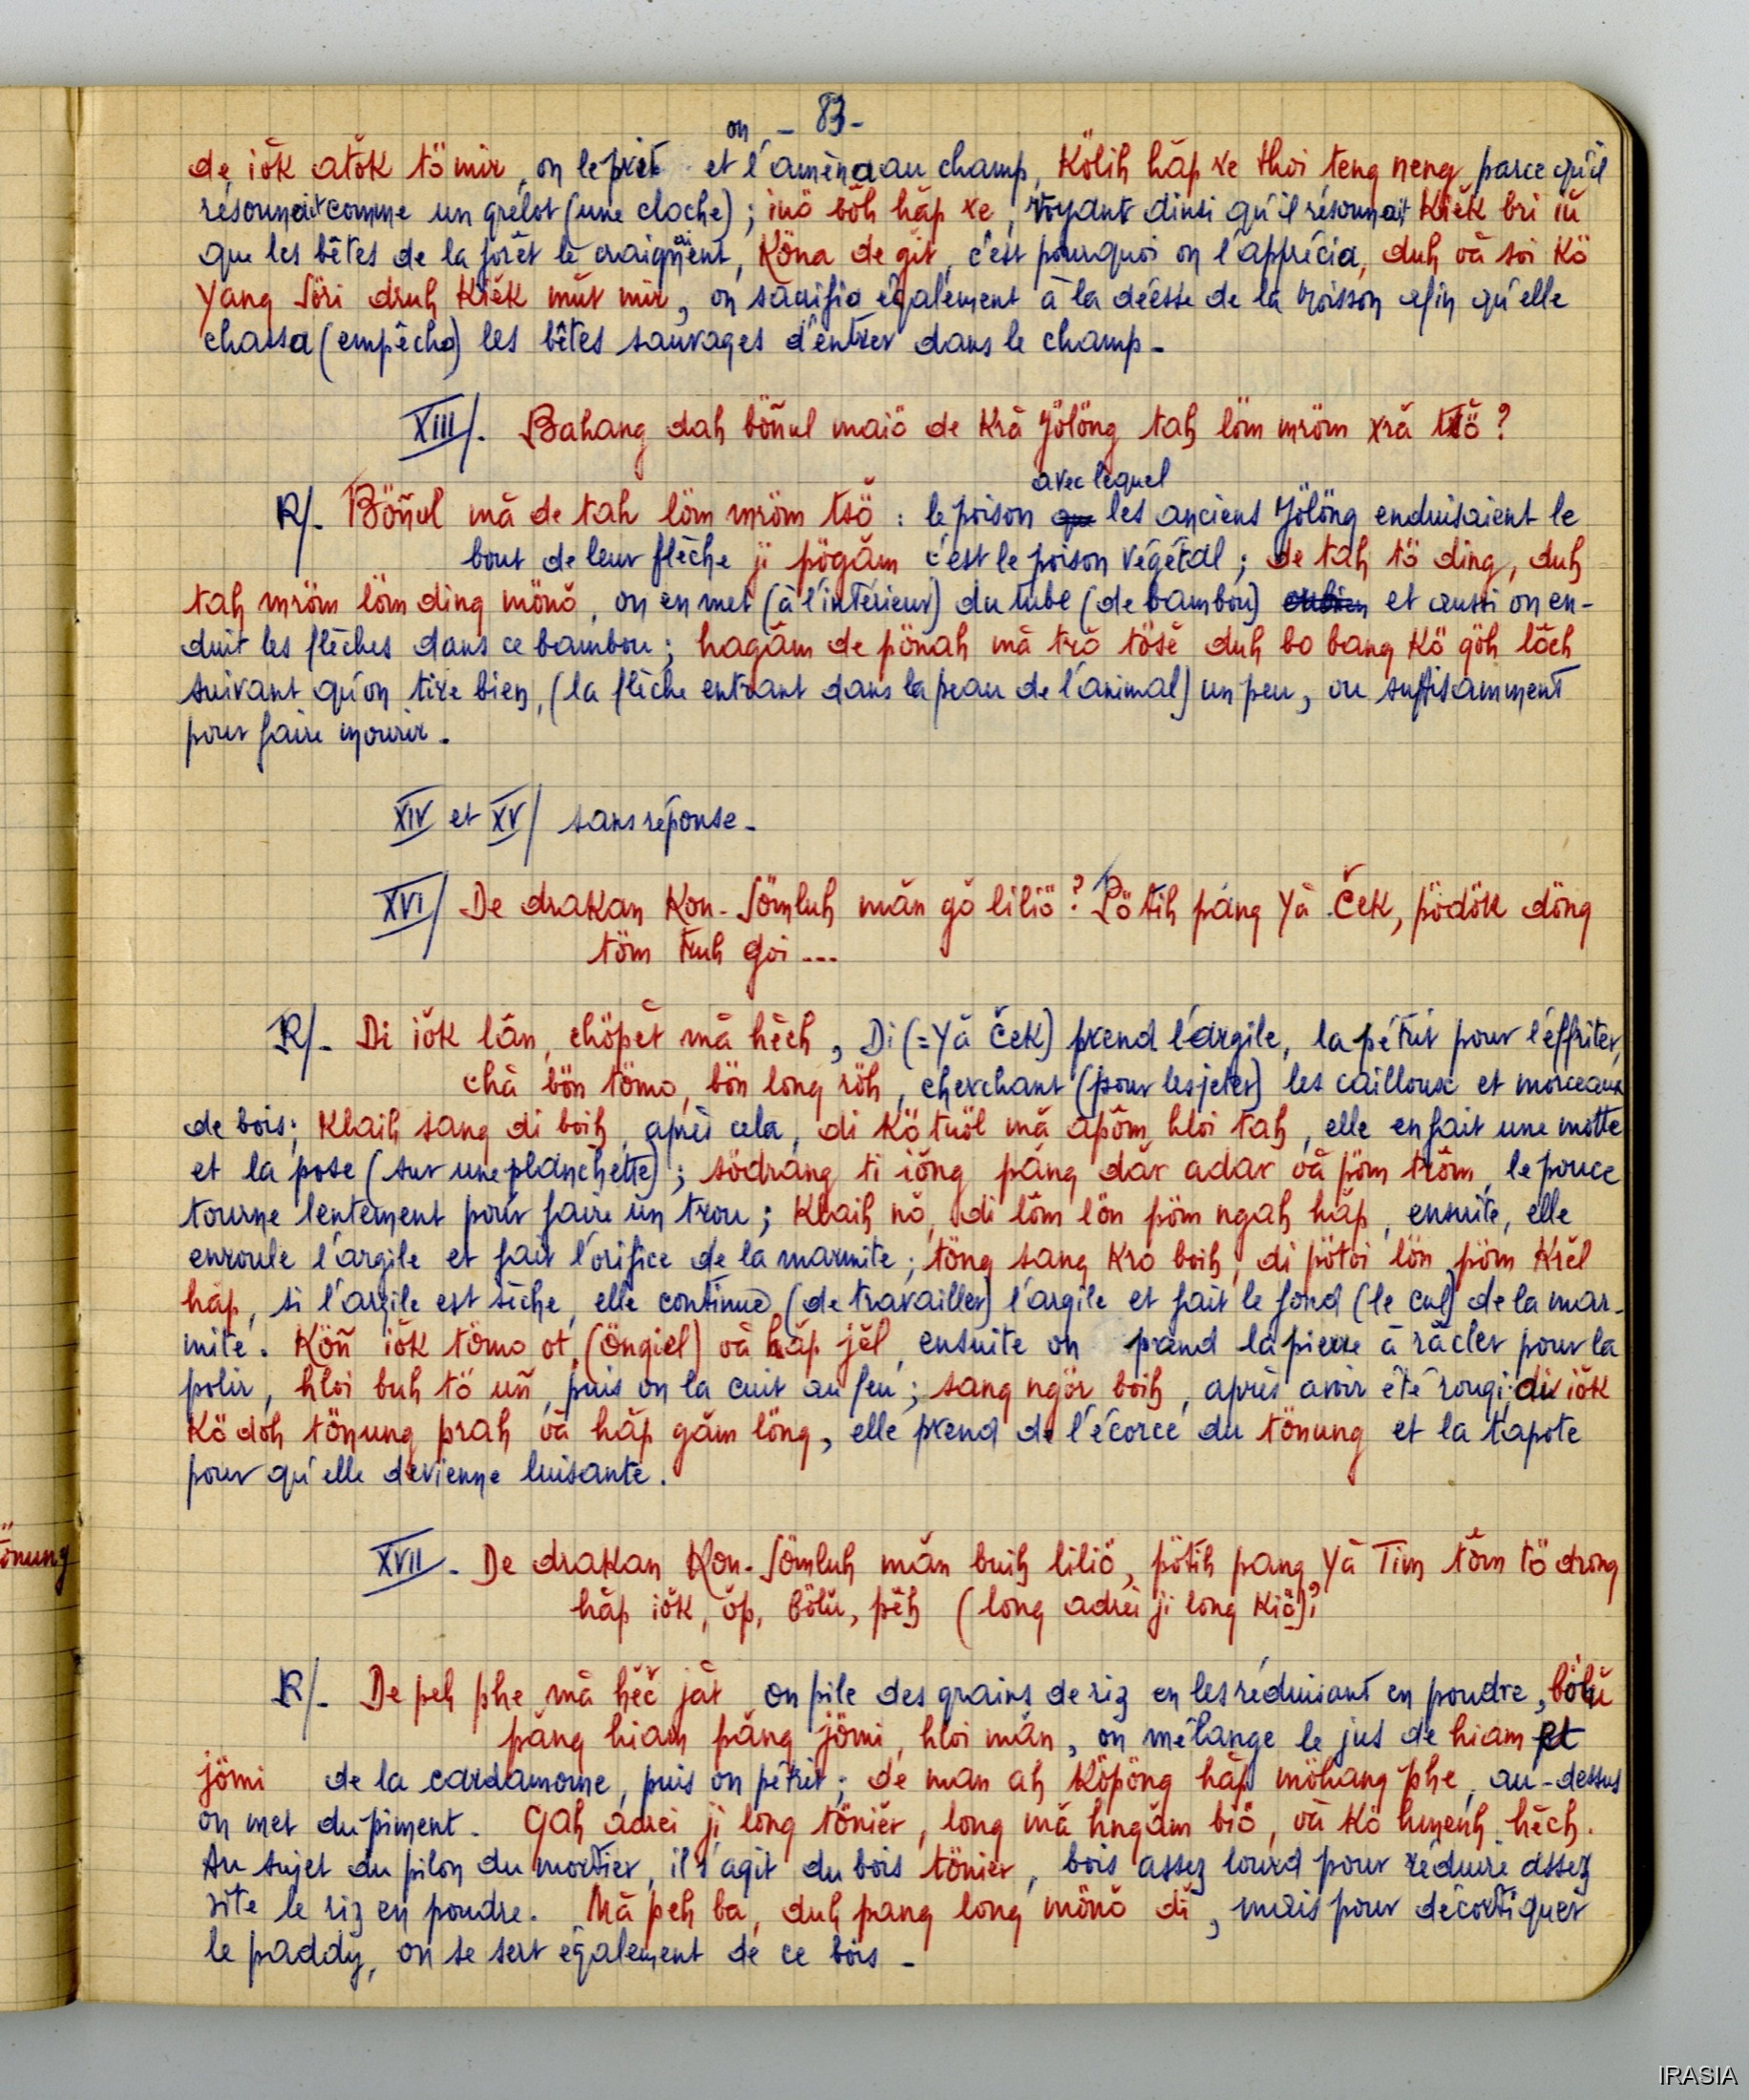 - 83 -
de iŏk atŏk tö mir, on le prit et on l'amèna au champ, Kölih hăp xe thoi teng neng parce qu'il
résonnait comme un grelot (une cloche) ; inö bŏh hăp xe, voyant ainsi qu'il résonnait Kiĕk bri iŭ
que les bêtes de la forêt le craignent, Köna de git, c'est pourquoi on l'apprécia, duh vă soi Kö
Yang Söri druh Kiĕk mŭt mir, on sacrifia également à la déesse de la moisson afin qu'elle
chassa (empêcha) les bêtes sauvages d'entrer dans le champ -
XIII/. Bahang dah böñul maiö de Kră Jölöng tah löm mröm xră tŏ ?
R/- Böñul mă de tah löm mröm tsö : le poison avec lequel les anciens Jölöng enduisaient le
bout de leur flèche ji pögăm c'est le poison végétal ; de tah tö ding, duh
tah mröm löm ding mönŏ, on en met (à l'intérieur) du tube (de bambou) et aussi on en-
duit les flèches dans ce bambou ; hagăm de pönah mă trŏ tösĕ duh bo bang Kö göh lŏch
suivant qu'on tire bien, (la flèche entrant dans la peau de l'animal) un peu, ou suffisamment
pour faire mourir.
XIV et XV/ sans réponse -
XVI/ De drakan Kon-Sömluh măn gŏ liliö ? Pötih păng Yă Ček, pödŏk dŏng
töm truh goi ...
R/- Di iŏk lăn, chöpĕt mă hĕch, Di (= Yă Ček) prend l'argile, la pétrit pour l'éffriter,
chă bŏn tömo, bŏn long röh, cherchant (pour les jeter) les cailloux et morceaux
de bois ; Klaih sang di boih, après cela, di Kö tuŏl mă apŏm hloi tah, elle en fait une motte
et la pose (sur une planchette) ; södrang ti iŏng păng dăr adar vă pöm trŏm, le pouce
tourne lentement pour faire un trou ; Klaih nŏ, di lŏm lŏn pöm ngah hăp, ensuite, elle
enroule l'argile et fait l'orifice de la marmite ; töng sang Kro boih, di pötoi lŏn pöm Krĕl
hăp, si l'argile est sèche, elle continue (de travailler) l'argile et fait le fond (le cul) de la mar-
mite. Köñ iŏk tömo ot (öngiel) vă hăp jĕl, ensuite on prend la pierre à râcler pour la
polir, hloi buh tö uñ, puis on la cuit au feu ; sang ngör boih, après avoir été rougi, di iŏk
Kö dŏh tönung prah vă hăp găm löng, elle prend de l'écorce du tönung et la tapote
pour qu'elle devienne luisante.
XVII - De drakan Kon-Sömluh măn buih liliö, pötih pang Yă Tim tŏm tö drong
hăp iŏk, ŏp, bölŭ, pĕh (long adrei ji long Kiŏ) ?
R/- De peh phe mă hĕč jăt on pile des grains de riz en les réduisant en poudre, bölŭ
păng hiam păng jömi, hloi măn, on mélange le jus de hiam et
jömi de la cardamome, puis on pétrit ; de man ah Köpöng hăp möhang phe, au-dessus
on met du piment. Gah adrei ji long töniĕr, long mă hngăm biö, vă Kö hmenh hĕch.
Au sujet du pilon du mortier, il s'agit du bois töniĕr, bois assez lourd pour réduire assez
vite le riz en poudre. Mă peh ba, duh pang long mönŏ dĭ, mais pour décortiquer
le paddy, on se sert également de ce bois -
önung
IRASIA